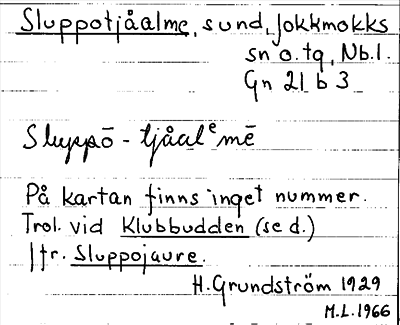 Sluppotjåalme, sund, Jokkmokks
sn o. tg, Nb.l.
Gn 21 b 3
Sluppō - tjåalᵉmē
På kartan finns inget nummer.
Trol. vid Klubbudden (se d.)
I fr. Sluppojaure.
H. Grundström 1929
M.L. 1966